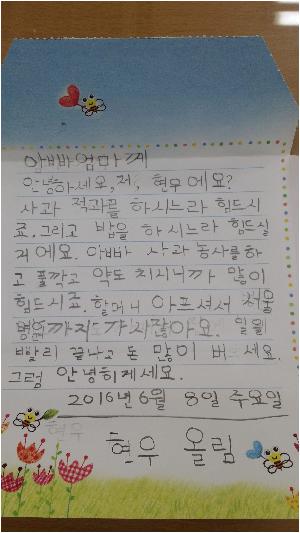 아빠엄마께
안녕하세요, 저, 현우에요?
사과 적과를 하시느라 힘드시
죠. 그리고 밥을 하시느라 힘드실
거에요. 아빠빠 사과 농사를하
고 풀깍고 약도 치시니까 많이
힘드시죠. 할머니 아프셔서 서울
병원까지 가시잖아요. 일을
빨리 끝나고 돈 많이 버세요.
그럼 안녕히게세요.
2016년 6월 8일 수요일
현우
현우 올림